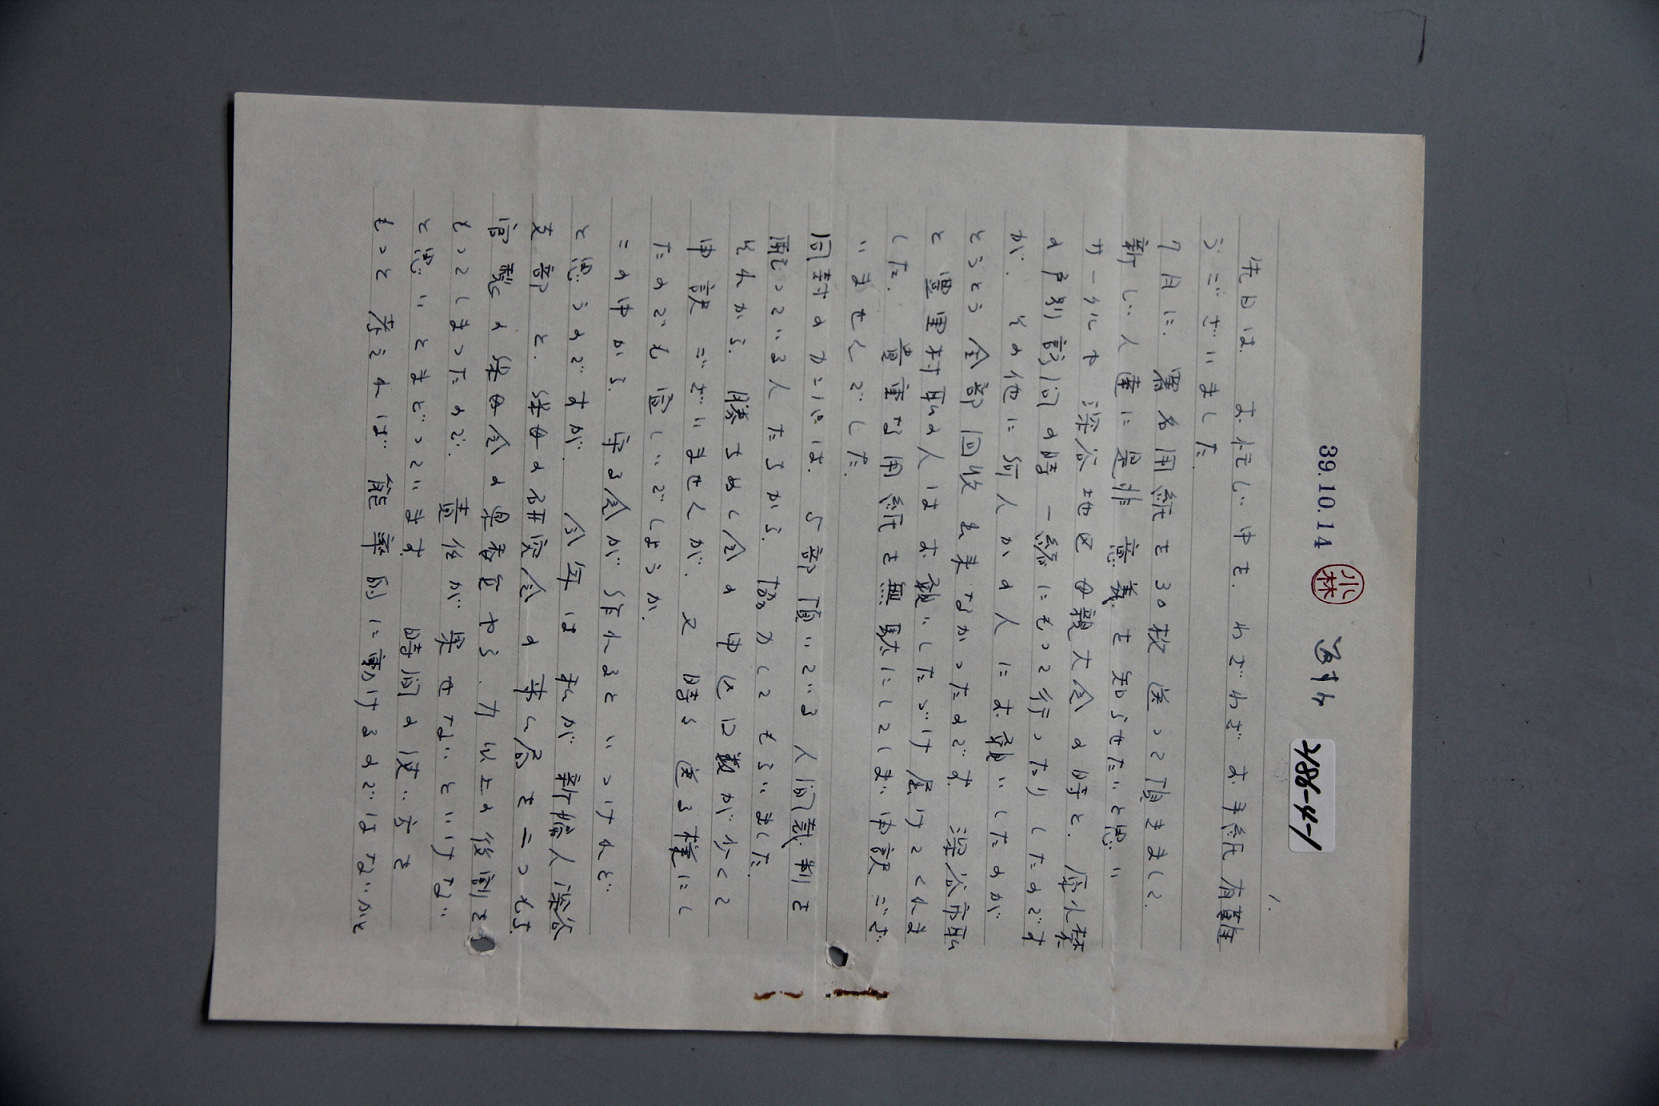 39.10.14 小林
4886-4-1
1.
先日は お忙しい中を、わざわざ お手紙 有難
うございました。
7月に、署名用紙を30枚 送って頂きまして、
新しい人達に是非 意義を知らせたいと思い
カールや 深谷地区母親大会の時と、原水禁
の戸別訪問の時 一緒にもって行ったりしたのです
が、その他に何人かの人にお願いしたのが
とうとう 全部回収出来なかったのです 深谷市職
と 豊里村職の人はお願いしたゞけ届けてくれま
した、 貴重な用紙を無駄にしてしまい申訳ござ
いませんでした。
同封のカンパは、5部頂いている 人間裁判を
配っている人たちから、協力してもらいました。
それから、勝すめん会の 申込口数が少くて
申訳ございませんが、又 時々 送る様にし
たのでも宜しいでしょうか。
この中から、守る会が 作れるといゝけれど
と思うのですが、 今年は 私が 新婦人深谷
支部と、保母の研究会の 事ム局を二つもち、
官製の保母会の具吞重やら、力以上の役割を
もってしまったので、責任が果せないといけない
と思いとまどっています。 時間の使い方を
もっと 考えれば 能率的に動けるのではないかと